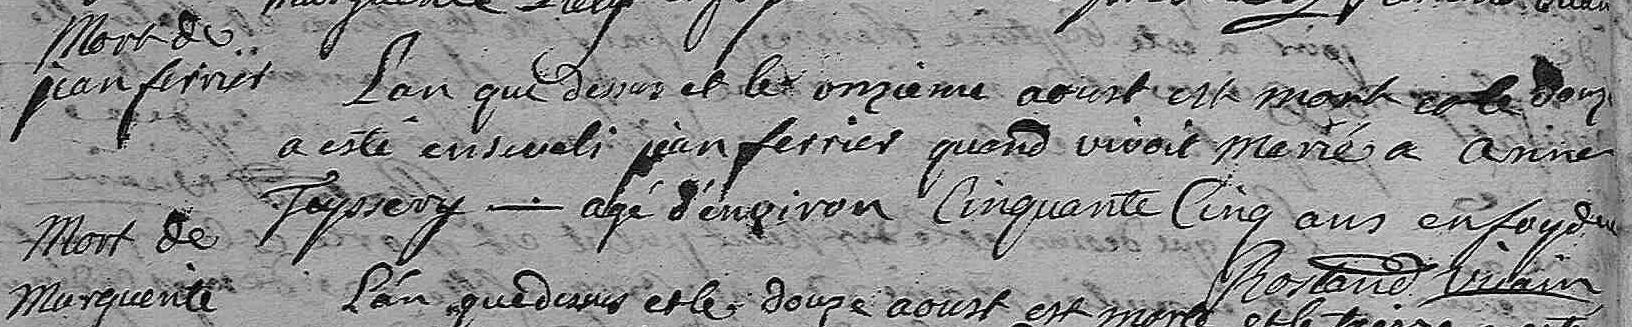 Mort de
jean ferrier
L'an que dessus et le onzieme aoust est mort et le douze
a esté enseveli jean ferrier quand vivoit marié a anne
Teyssery — agé d'environ Cinquante Cinq ans en foy de
Rostand vicaire
Mort de
Marguerite
L'an que dessus et le douze aoust est mort et le treize